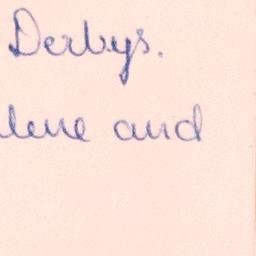 Derbys.
lene and